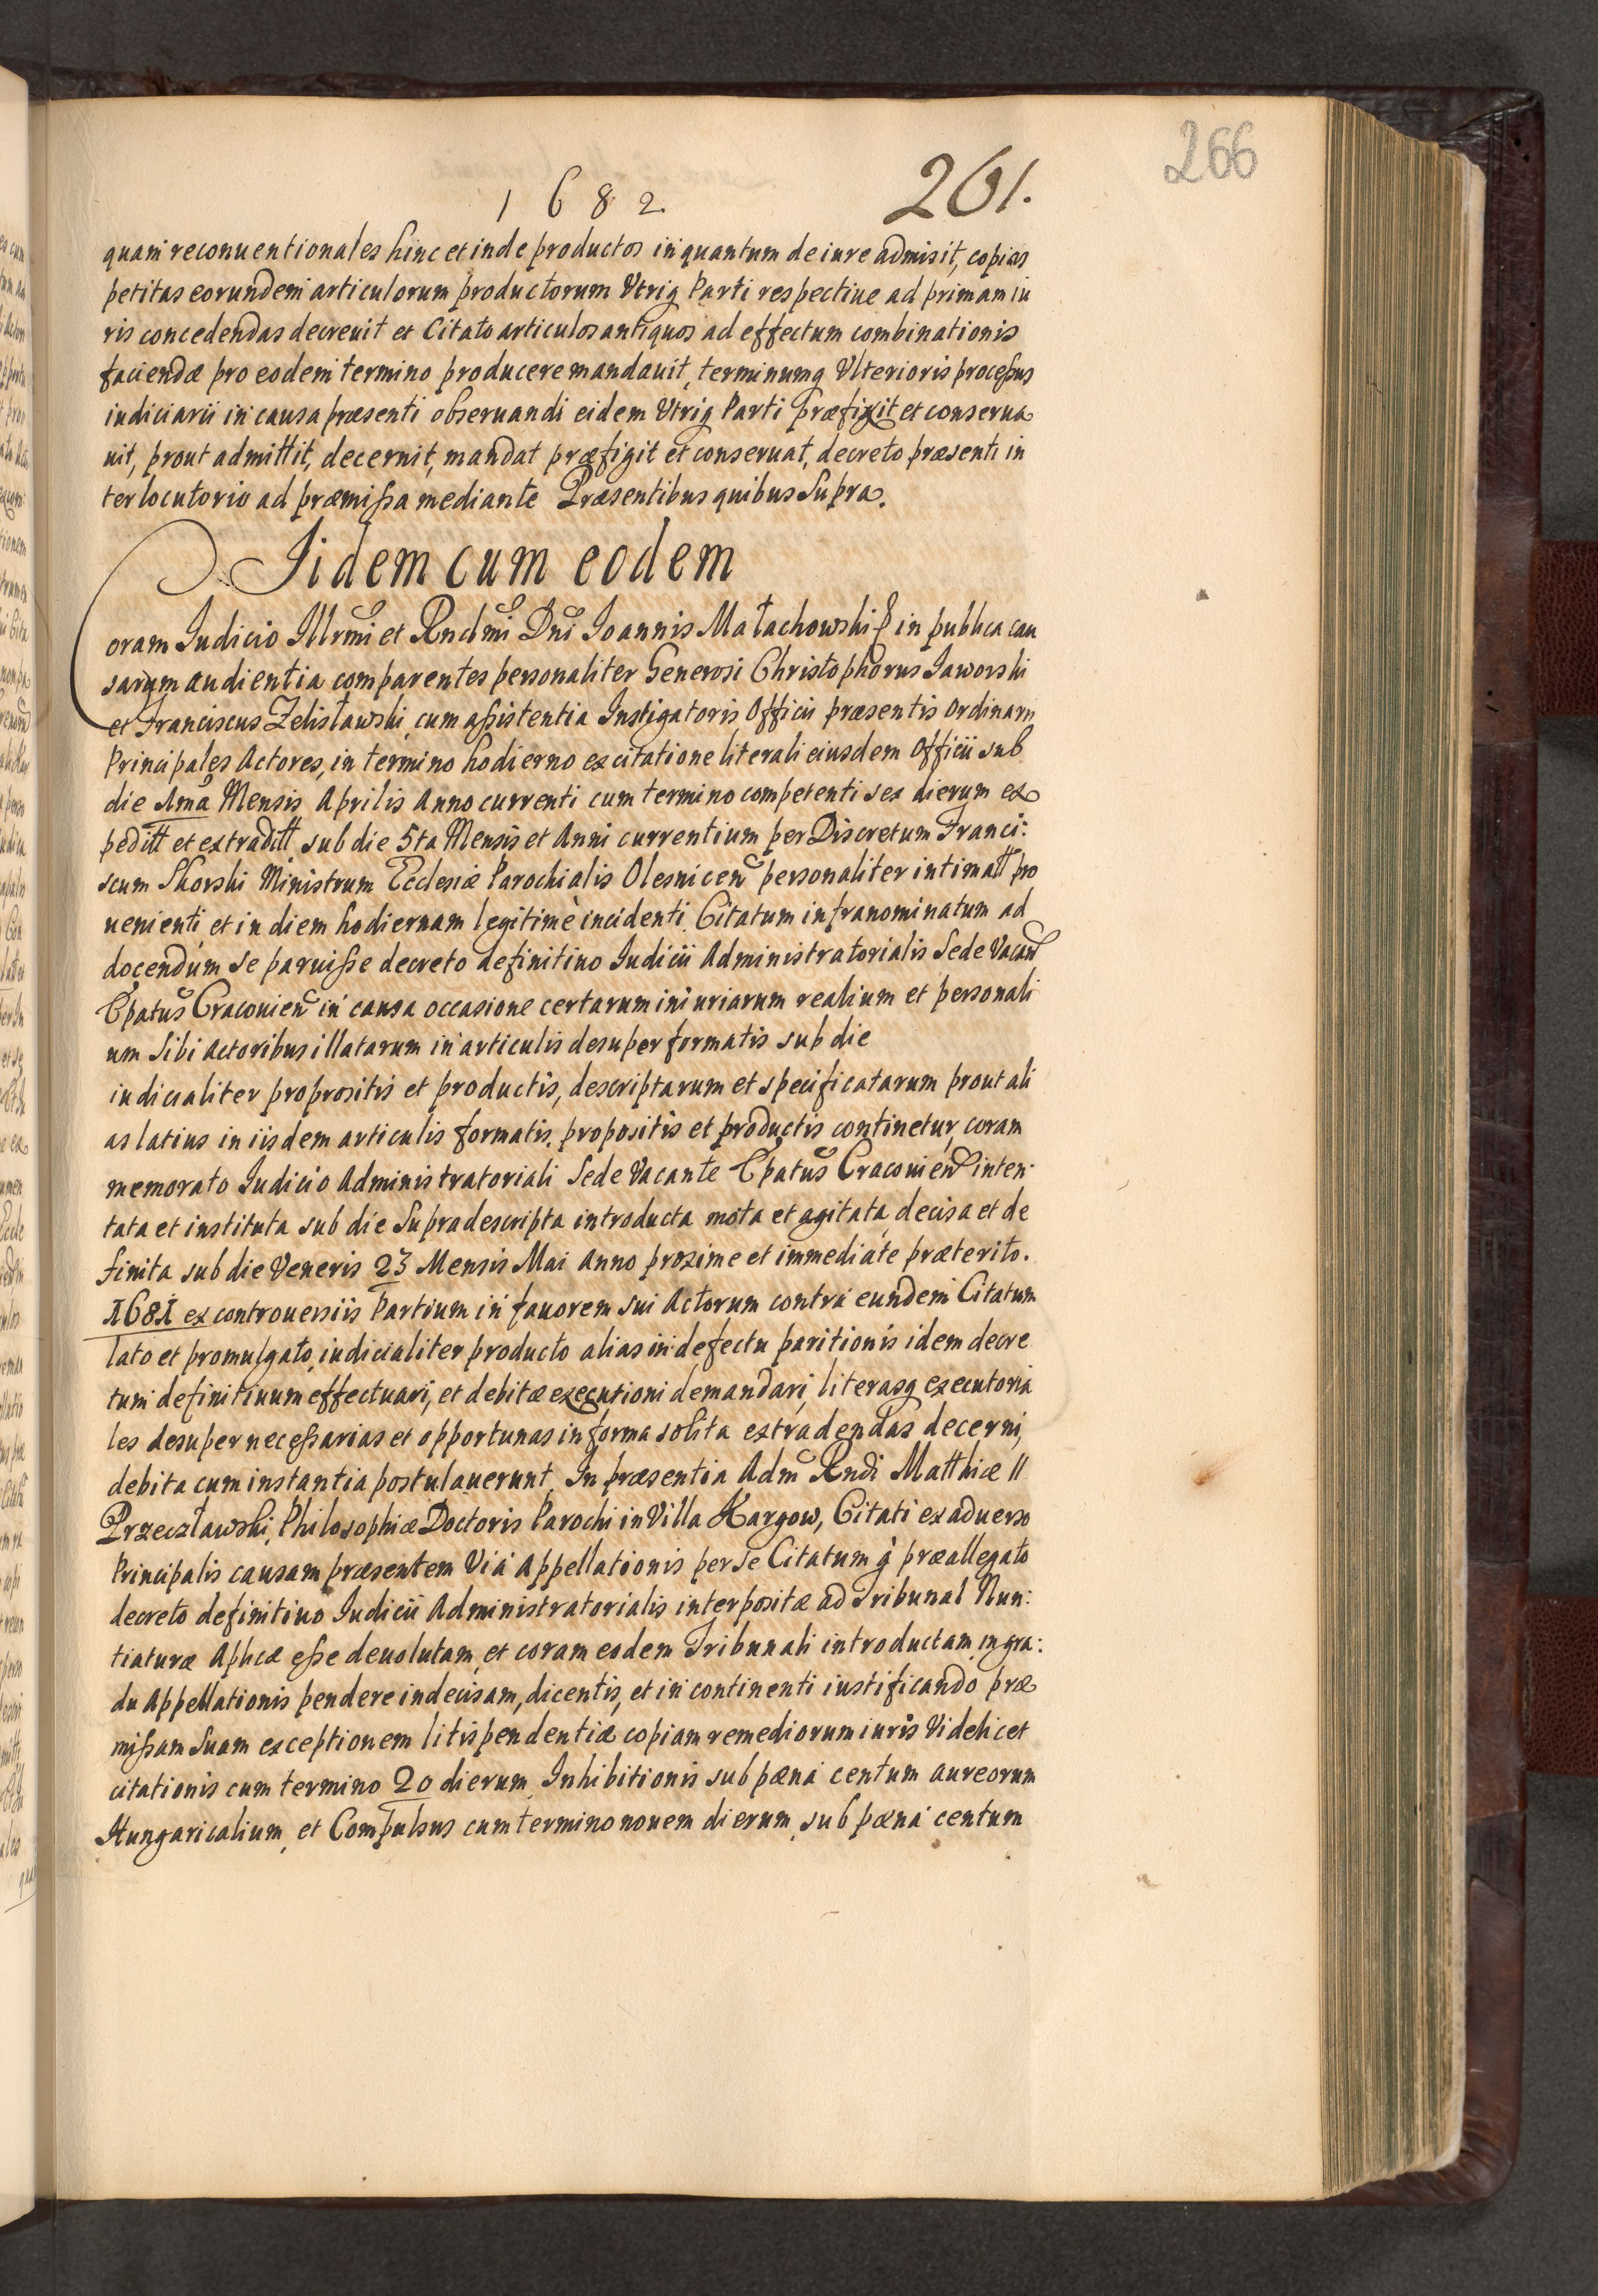 266
1682
261.
quam reconuentionales hinc et inde productos inquantum de iure admisit, copias
petitas eorundem articulorum productorum Vtriq Parti respectiue ad primam iu
ris concedendas decreuit et Citato articulos antiquos ad effectum combinationis
faciendæ pro eodem termino producere mandauit, terminumq Vlterioris proceßus
iudiciarii in causa præsenti obseruandi eidem Vtriq Parti præfixit et conserua
uit, prout admittit, decernit, mandat præfigit et conseruat, decreto præsenti in
terlocutorio ad præmißa mediante Præsentibus quibus Supra.
Iidem cum eodem
Coram Iudicio Illrmi et Rndmi Dni Ioannis Małachowski in publica cau
sarum audientia comparentes personaliter Generosi Christophorus Iaworski
et Franciscus Zelisławski, cum aßistentia Instigatoris Officii præsentis Ordinarii
Principales Actores, in termino hodierno ex citatione literali eiusdem Officii sub
die Mensis Aprilis Anno currenti cum termino competenti sex dierum ex
peditt et extraditt sub die 5ta Mensis et Anni currentium per Discretum Franci:
scum Skorski Ministrum Ecclesiæ Parochialis Olesnicen personaliter intimatt pro
uenienti, et in diem hodiernam legitimè incidenti Citatum infranominatum ad
docendum se paruiße decreto definitiuo Iudicii Administratorialis Sede Vacan
Epatus Cracouien in causa occasione certarum iniuriarum realium et personali
um Sibi Actoribus illatarum in articulis desuper formatis sub die
iudicialiter proprositis et productis, descriptarum et specificatarum prout ali
as latius in iisdem articulis formatis, propositis et productis continetur, coram
memorato Iudicio Administratoriali Sede Vacante Epatus Cracouien inten
tata et instituta sub die Supradescripta introducta mota et agitata, decisa et de
finita sub die Veneris 23 Mensis Mai Anno proxime et immediate præterito.
1681 ex controuersiis Partium in fauorem sui Actorum contra eundem Citatum
lato et promulgato, iudicialiter producto alias in defectu paritionis idem decre
tum definitiuum effectuari, et debitæ executioni demandari, literasq executoria
les desuper neceßarias et opportunas in forma solita extradendas decerni,
debita cum instantia postulauerunt, In præsentia Adm Rndi Matthiæ
Przeczławski, Philosophiæ Doctoris Parochi in Villa Kargow, Citati ex aduerso
Principalis causam præsentem Via Appellationis per se Citatum à præallegato
decreto definitiuo Iudicii Administratorialis interpositæ ad Tribunal Nun:
tiaturæ Aplicæ eße deuolutam, et coram eodem Tribunali introductam, in gra:
du Appellationis pendere indecisam, dicentis, et in continenti iustificando præ
mißam Suam exceptionem litis pendentiæ copiam remediorum iuris Videlicet
citationis cum termino 20 dierum, Inhibitionis sub pæna centum aureorum
Hungaricalium, et Compulsus cum termino nouem dierum, sub pæna centum